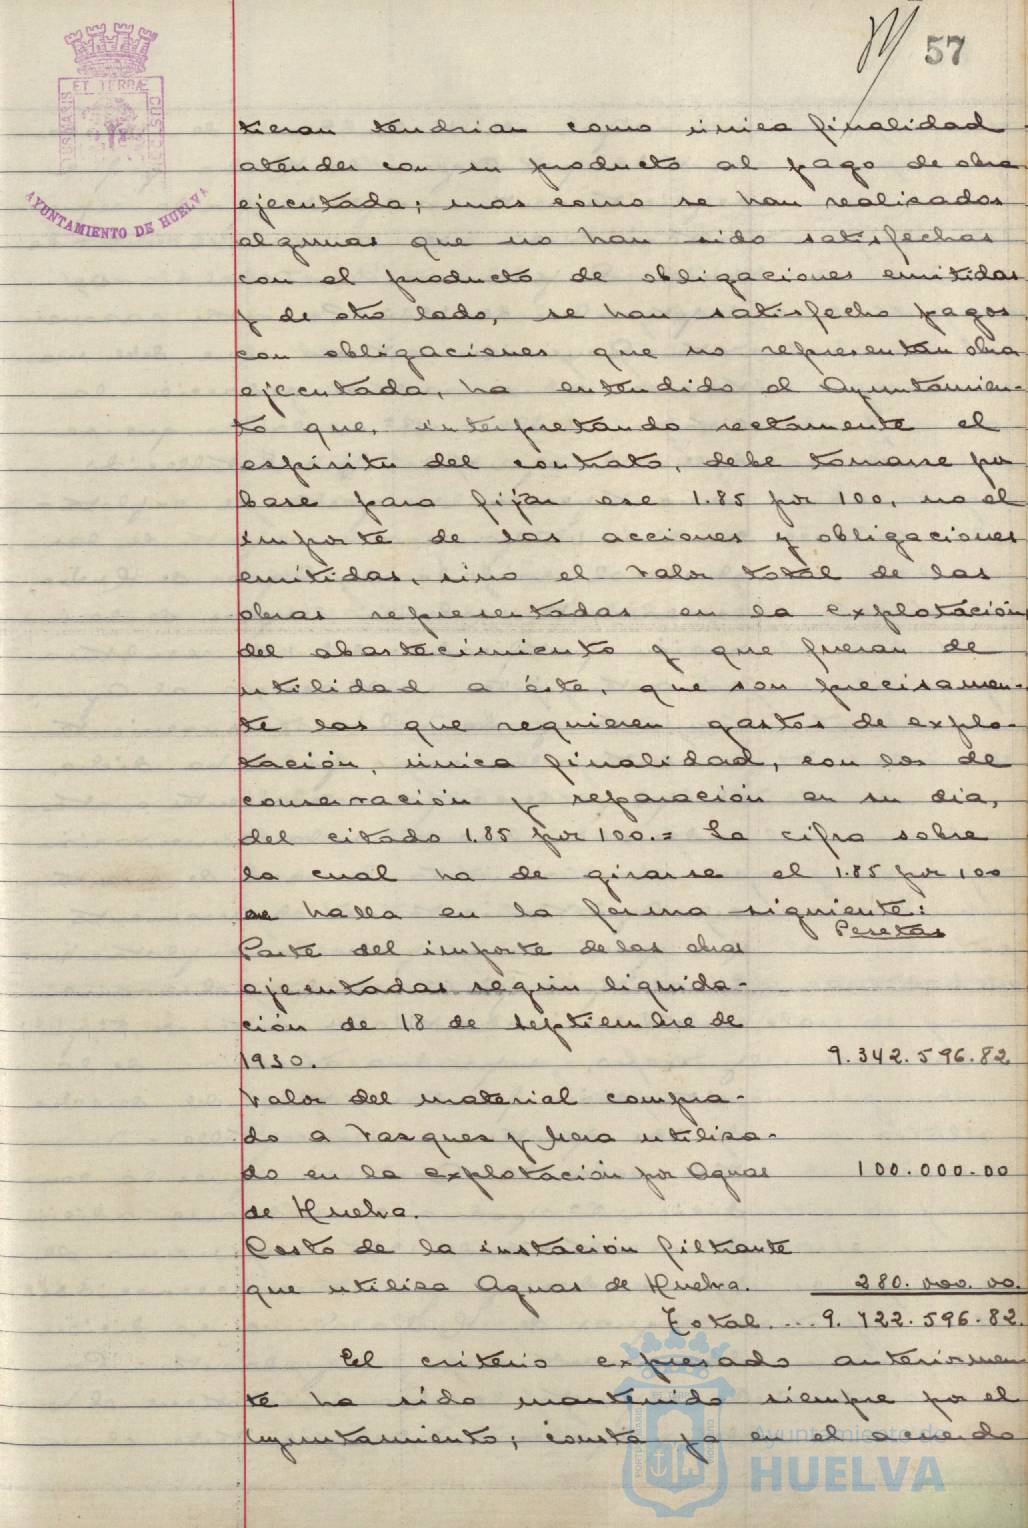 57
ET TERRÆ
AYUNTAMIENTO DE HUELVA
tieran tendrian como única finalidad
atender con su producto al pago de obra
ejecutada; mas como se han realizados
algunas que no han sido satisfechas
con el producto de obligaciones emitidas
y de otro lado, se han satisfecho pagos
con obligaciones que no representan obra
ejecutada, ha entendido el Ayuntamien-
to que, interpretando rectamente el
espiritu del contrato, debe tomarse por
base para fijar ese 1.85 por 100, no el
importe de las acciones y obligaciones
emitidas, sino el valor total de las
obras representadas en la explotación
del abastecimiento y que fueran de
utilidad a éste, que son precisamen-
te las que requieren gastos de explo-
tación, única finalidad, con los de
conservación y reparación en su dia,
del citado 1.85 por 100.= La cifra sobre
la cual ha de girarse el 1.85 por 100
se halla en la forma siguiente:
Pesetas
Parte del importe de las obras
ejecutadas según liquida-
ción de 18 de septiembre de
1930. 9.342.596.82
Valor del material compra-
do a Vazquez y Pera utiliza-
do en la explotación por Aguas 100.000.00
de Huelva.
Costo de la instación filtrante
que utiliza Aguas de Huelva. 280.000.00.
Total.... 9.722.596.82.
El criterio expresado anteriormen
te ha sido mantenido siempre por el
Ayuntamiento; consta ya en el acuerdo
Ayuntamiento de
HUELVA